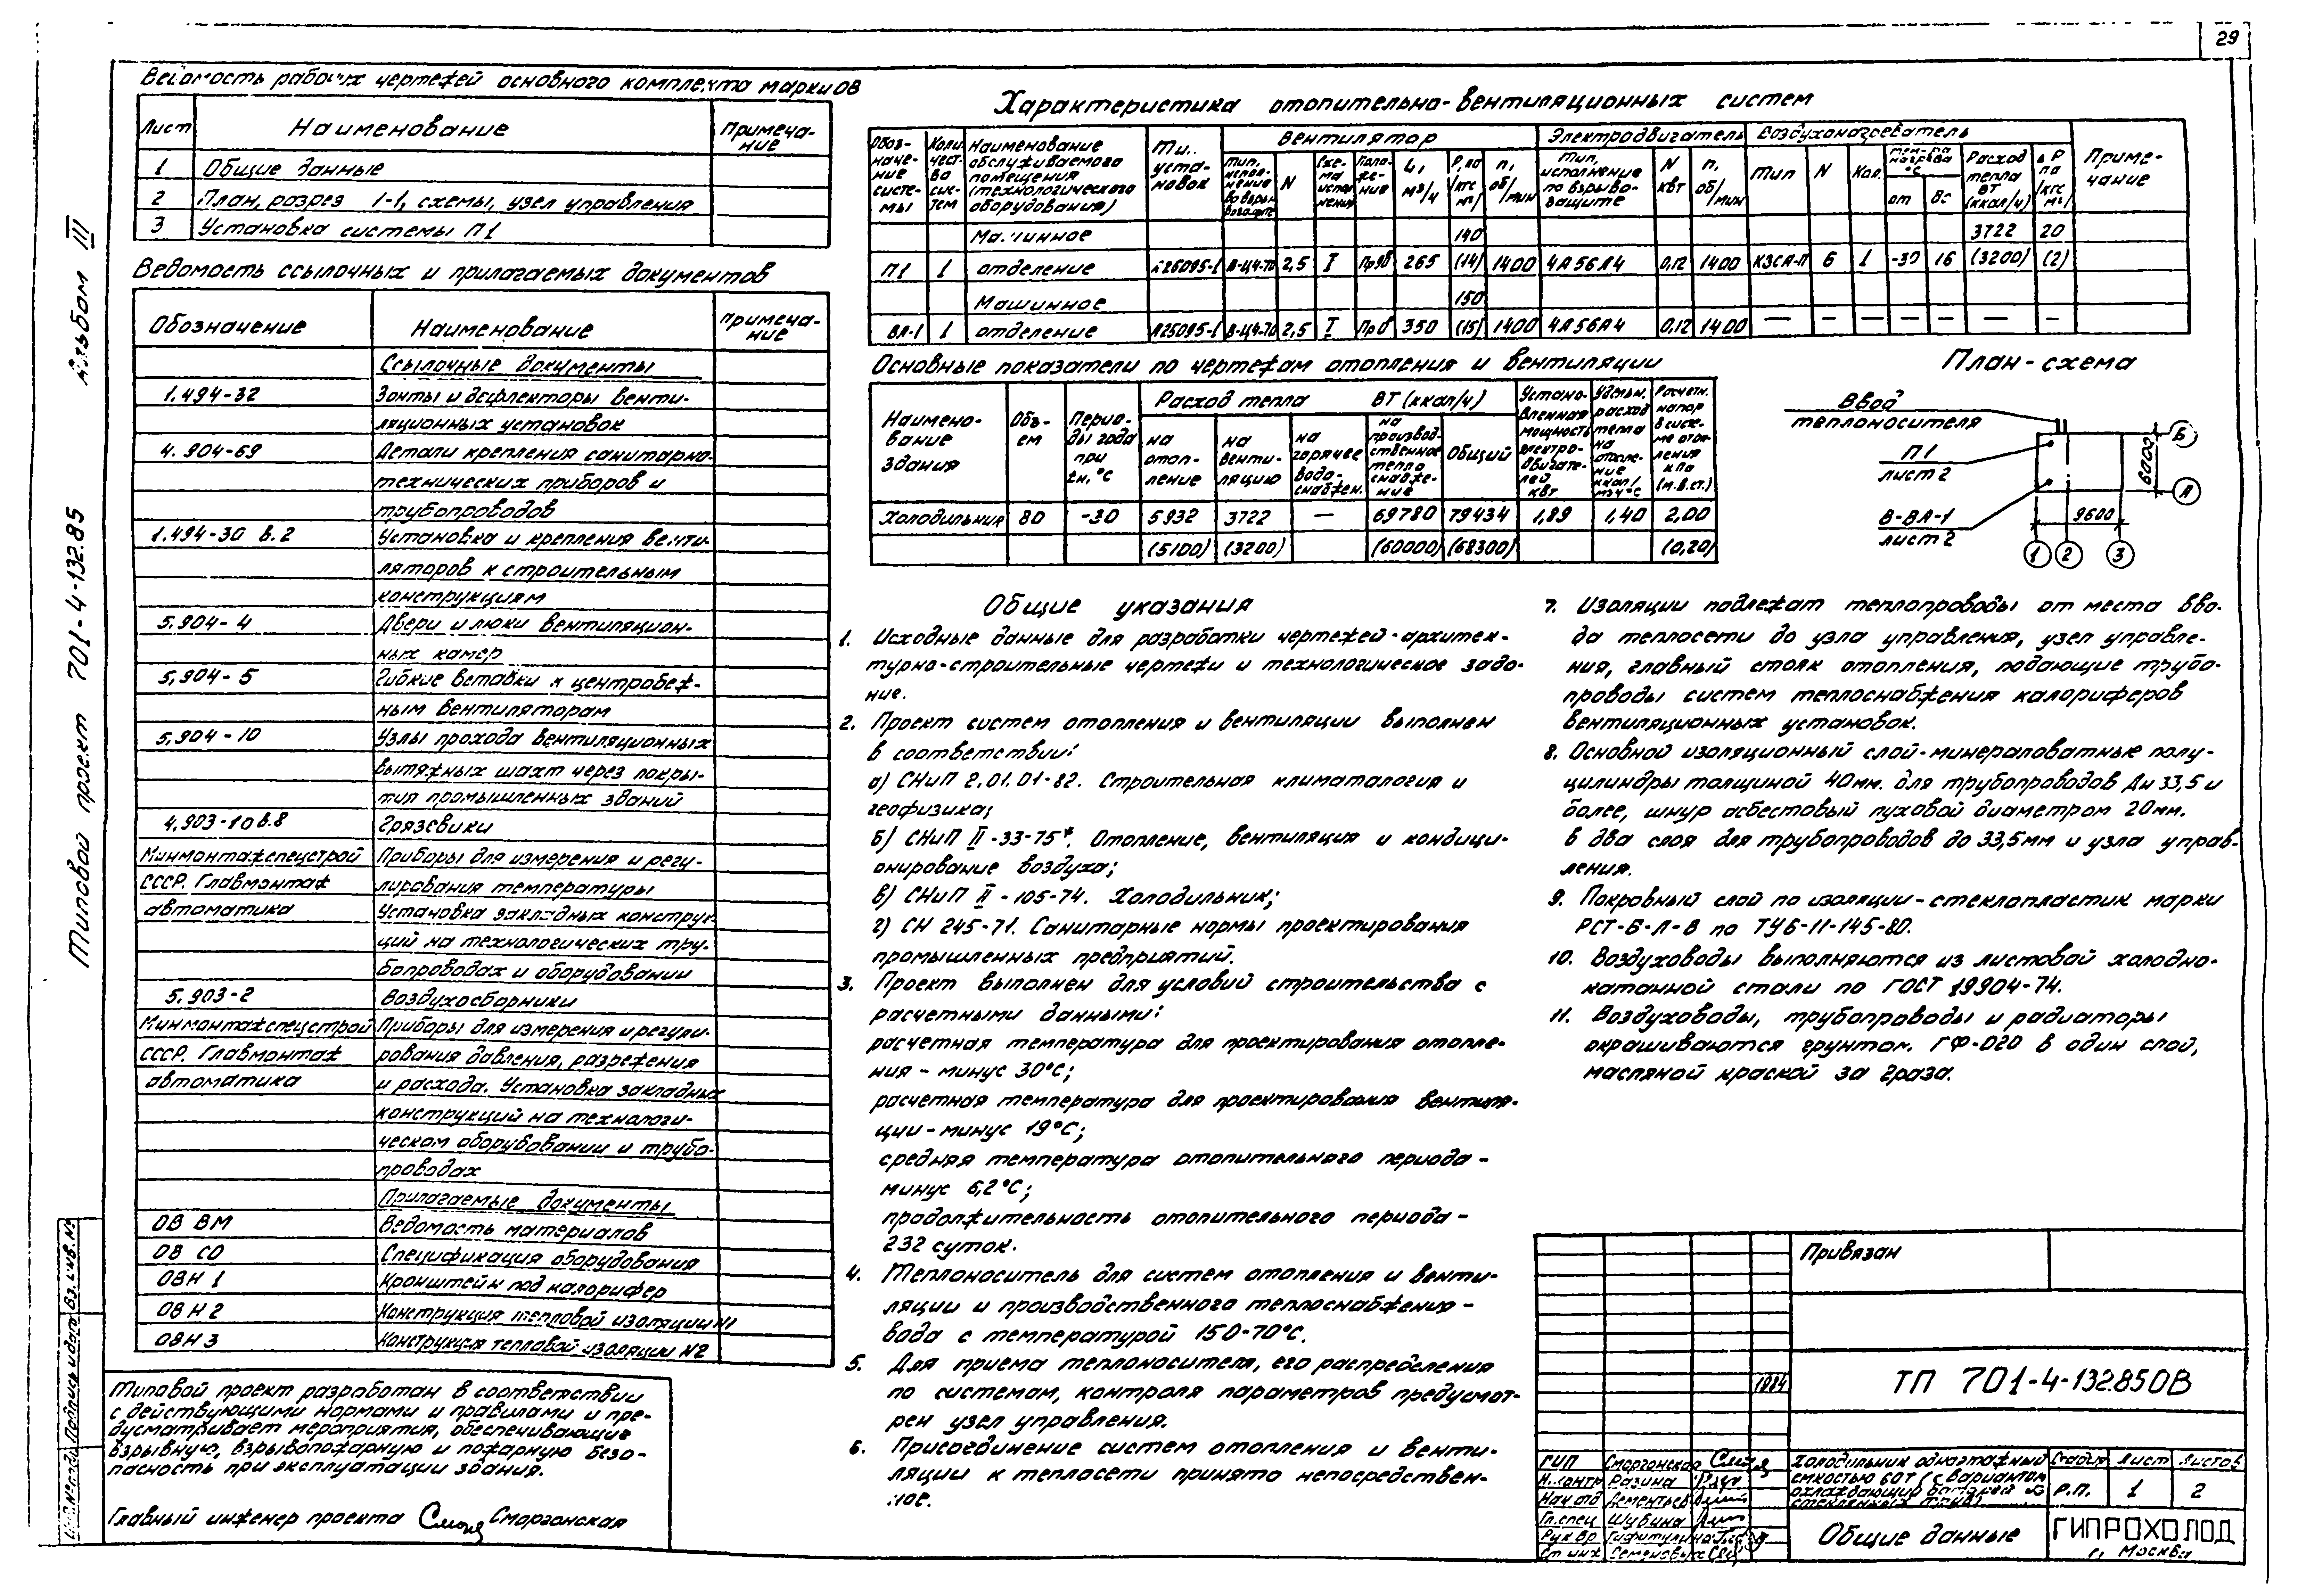 29
Альбом III
Типовой проект 701-4-132.85
Ведомость рабочих чертежей основного комплекта марки ОВ
Лист Наименование Примеча-
ние
1 Общие данные
2 План, разрез 1-1, схемы, узел управления
3 Установка системы П1
Ведомость ссылочных и прилагаемых документов
Обозначение Наименование Примеча-
ние
Ссылочные документы
1.494-32 Зонты и дефлекторы венти-
ляционных установок
4.904-69 Детали крепления санитарно-
технических приборов и
трубопроводов
1.494-30 в.2 Установка и крепления венти-
ляторов к строительным
конструкциям
5.904-4 Двери и люки вентиляцион-
ных камер
5.904-5 Гибкие вставки к центробеж-
ным вентиляторам
5.904-10 Узлы прохода вентиляционных
вытяжных шахт через покры-
тия промышленных зданий
4.903-10 в.8 Грязевики
Минмонтажспецстрой Приборы для измерения и регу-
СССР. Главмонтаж лирования температуры
автоматика Установка закладных конструк-
ций на технологических тру-
бопроводах и оборудовании
5.903-2 Воздухосборники
Минмонтажспецстрой Приборы для измерения и регули-
СССР. Главмонтаж рования давления, разрежения
автоматика и расхода. Установка закладных
конструкций на технологи-
ческом оборудовании и трубо-
проводах
Прилагаемые документы
ОВ ВМ Ведомость материалов
ОВ СО Спецификация оборудования
ОВН 1 Кронштейн под калорифер
ОВН 2 Конструкция тепловой изоляции N1
ОВН 3 Конструкция тепловой изоляции N2
Типовой проект разработан в соответствии
с действующими нормами и правилами и пре-
дусматривает мероприятия, обеспечивающие
взрывную, взрывопожарную и пожарную безо-
пасность при эксплуатации здания.
Главный инженер проекта Сморгонская
Характеристика отопительно-вентиляционных систем
Обоз-
наче-
ние
систе-
мы
Коли-
чест-
во
сис-
тем
Наименование
обслуживаемого
помещения
(технологического
оборудования)
Тип
уста-
новок
Вентилятор
Тип,
испол-
нение
по взрыво-
защите
N
Схе-
ма
испол-
нения
Поло-
же-
ние
L,
м³/ч
Р, па
(кгс/
м²)
n,
об/
мин
Электродвигатель
Тип,
исполнение
по взрыво-
защите
N
квт
n,
об/
мин
Воздухонагреватель
Тип N Кол.
Тем-ра
нагрева
°С
от до
Расход
тепла
ВТ
(ккал/ч)
ΔР
па
(кгс/
м²)
Приме-
чание
Машинное 140 3722 20
П1 1 отделение А25095-1 В-Ц4-70 2,5 I Пр90 265 (14) 1400 4А56А4 0,12 1400 КЗСА-П 6 1 -30 16 (3200) (2)
Машинное 150
ВА-1 1 отделение А25095-1 В-Ц4-70 2,5 I Пр0 350 (15) 1400 4А56А4 0,12 1400 — — — — — — —
Основные показатели по чертежам отопления и вентиляции
Наимено-
вание
здания
Объ-
ем
Перио-
ды года
при
tн, °С
Расход тепла ВТ (ккал/ч)
на
отоп-
ление
на
венти-
ляцию
на
горячее
водо-
снабжен.
на
производ-
ственное
тепло
снабже-
ние
Общий
Устано-
вленная
мощность
электро-
двигате-
лей
квт
Удельн.
расход
тепла
на
отопле-
ние
ккал/
м³ч°С
Расчетн.
напор
в систе-
ме отоп-
ления
кПа
(м.в.ст.)
Холодильник 80 -30 5932 3722 — 69780 79434 1,89 1,40 2,00
(5100) (3200) (60000) (68300) (0,20)
План-схема
Ввод
теплоносителя
П1
лист 2
В-ВА-1
лист 2
6000
9600
Б
А
1 2 3
Общие указания
1. Исходные данные для разработки чертежей-архитек-
турно-строительные чертежи и технологическое зада-
ние.
2. Проект систем отопления и вентиляции выполнен
в соответствии:
а) СНиП 2.01.01-82. Строительная климатология и
геофизика;
б) СНиП II-33-75*. Отопление, вентиляция и кондици-
онирование воздуха;
в) СНиП II-105-74. Холодильник;
г) СН 245-71. Санитарные нормы проектирования
промышленных предприятий.
3. Проект выполнен для условий строительства с
расчетными данными:
расчетная температура для проектирования отопле-
ния - минус 30°С;
расчетная температура для проектирования вентиля-
ции - минус 19°С;
средняя температура отопительного периода -
минус 6,2°С;
продолжительность отопительного периода -
232 суток.
4. Теплоноситель для систем отопления и венти-
ляции и производственного теплоснабжения -
вода с температурой 150-70°С.
5. Для приема теплоносителя, его распределения
по системам, контроля параметров предусмот-
рен узел управления.
6. Присоединение систем отопления и венти-
ляции к теплосети принято непосредствен-
ное.
7. Изоляции подлежат теплопроводы от места вво-
да теплосети до узла управления, узел управле-
ния, главный стояк отопления, подающие трубо-
проводы систем теплоснабжения калориферов
вентиляционных установок.
8. Основной изоляционный слой-минераловатные полу-
цилиндры толщиной 40мм. для трубопроводов Дн 33,5 и
более, шнур асбестовый пуховой диаметром 20мм.
в два слоя для трубопроводов до 33,5мм и узла управ-
ления.
9. Покровный слой по изоляции-стеклопластик марки
РСТ-Б-Л-В по ТУ6-11-145-80.
10. Воздуховоды выполняются из листовой холодно-
катанной стали по ГОСТ 19904-74.
11. Воздуховоды, трубопроводы и радиаторы
окрашиваются грунтом. ГФ-020 в один слой,
масляной краской за 2раза.
Привязан
1984
ТП 701-4-132.85 ОВ
ГИП Сморгонская
Н.контр Разина
Нач отд Дементьев
Гл.спец Шубина
Рук вр
Ст инж Семеновых
Холодильник одноэтажный
емкостью 60т (с вариантом
охлаждающих батарей из
стеклянных труб)
Стадия Лист Листов
Р.П. 1 2
Общие данные
ГИПРОХОЛОД
г. Москва
Инв.№ подл. Подпись и дата Вз. инв. №